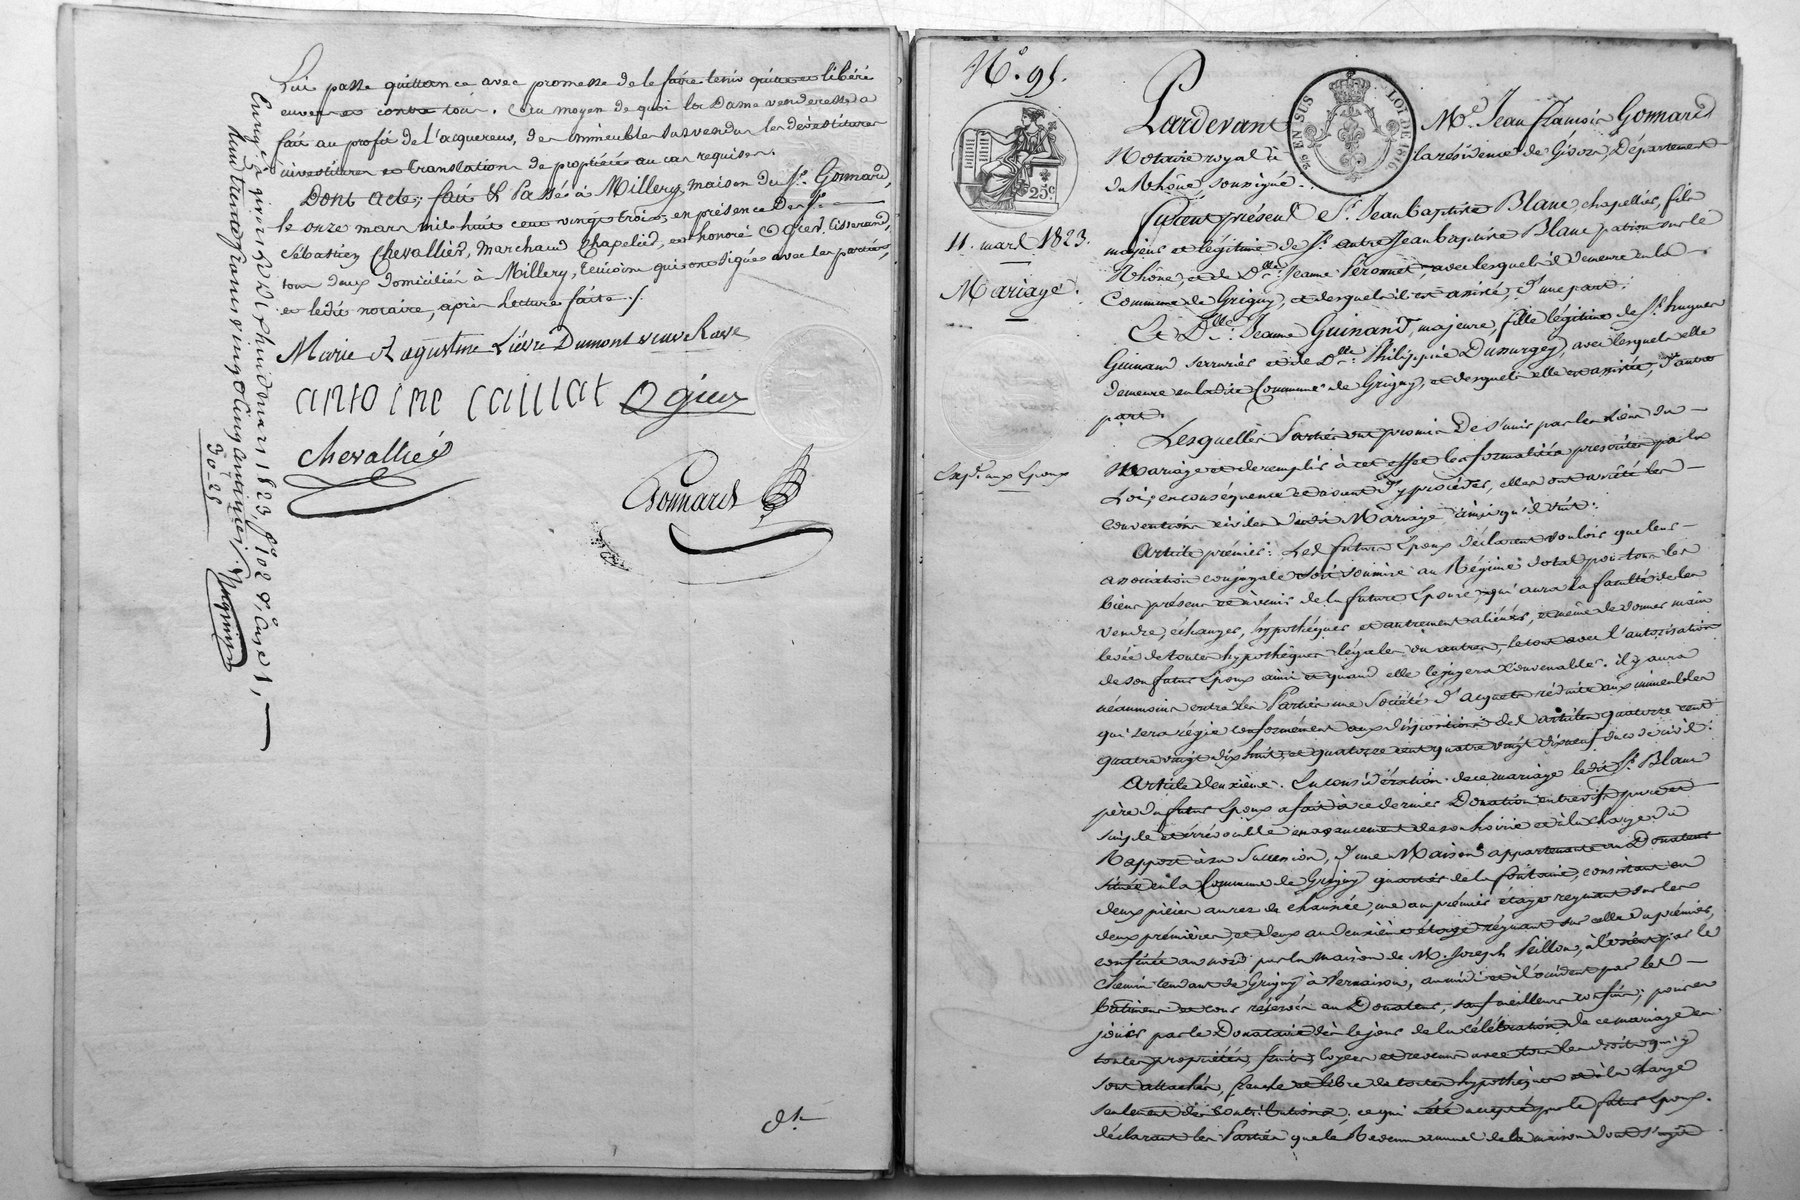 Lui passe quittance avec promesse de le faire tenir quitte et libéré
envers et contre tous. Au moyen de quoi la Dame venderesse a
fait au profit de l'acquereur, des immeubles susvendus les dévestitures
investitures et translations de propriétés au cas requises.
Dont acte; fait & Passé à Millery, maison du Sr. Gonnard,
le onze mars mil huit cent vingt trois, en présence de Srs.
Sébastien Chevallier, marchand Chapelier, et honoré Ogier, tisserand,
tous deux domiciliés à Millery, témoins qui ont signés avec les parties,
et ledit notaire, après lecture faite ./.
Marie Augustine Lièvre Dumont veuve Rave
antoine caillat Ogier
Chevallier
Gonnard
Enregé à givors le dix huit mars 1823, fo. 102 vo. Case 1,
trente francs vingt cinq centimes
30-25
dt
No. 95.
25 EN SUS
LOI DE 1816
25c
11. mars 1823.
Mariage.
Exp. aux Epoux
Pardevant Me. Jean François Gonnard
Notaire royal à la résidence de Givors, Département
du Rhône, soussigné.
Furent présents Sr. Jean Baptiste Blanc, chapellier, fils
majeur et légitime de Sr. autre Jean Baptiste Blanc, patron sur le
Rhône, et de Dlle. Jeanne Peronnet, avec lesquels il demeure en la
Commune de Grigny, et desquels il est assisté, d'une part;
Et Dlle. Jeanne Guinand, majeure, fille légitime de Sr. hugues
Guinand serrurier et de Dlle. Philippie Dumurgey, avec lesquels elle
demeure en ladite Commune de Grigny, et desquels elle est assistée, d'autre
part.
Lesquelles Parties ont promis de s'unir par les liens du
Mariage et de remplir à cet effet les formalités prescrites par la
Loi; en conséquence et avant d'y procéder, elles ont arrêté les
conventions civiles dudit Mariage, ainsi qu'il suit:
Article premier: Les futurs Epoux déclarent vouloir que leur
association conjugale soit soumise au Régime dotal pour tous les
biens présens et à venir de la future Epouse, qui aura la faculté de les
vendre, échanger, hypothéquer et autrement aliéner, et même de donner main
levée de toutes hypothèques légales ou autres, le tout avec l'autorisation
de son futur Epoux ainsi et quand elle le jugera convenable. il y aura
néanmoins entre les Parties une Société d'acquets réduite aux immeubles
qui sera régie conformément aux dispositions des articles quatorze cent
quatre vingt dix huit, et quatorze cent quatre vingt dix neuf du code civil:
Article deuxième. En considération de ce mariage ledit Sr. Blanc
père du futur Epoux a fait à ce dernier Donation entrevifs pure et
simple et irrévocable en avancement de son hoirie et à la charge du
Rapport à sa Succession, d'une Maison appartenante au Donateur
située en la Commune de Grigny quartier de la fontaine, consistant en
deux pièces au rez de chaussée, une au premier étage régnant sur les
deux premières, et deux au deuxième étage régnant sur celle du premier,
confinée au nord par la maison de M. Joseph Peillon, à l'orient par le
Chemin tendant de Grigny à Vernaison, au midi et à l'occident par les
bâtimens et cour réservés au Donateur, sauf meilleurs confins; pour en
jouir par le Donataire dès le jour de la célébration de ce mariage en
toutes propriétés, fruits, loyers et revenus avec tous les droits qui y
sont attachés, franche et libre de toutes hypothèques et à la charge
seulement des Contributions. ce qui a été accepté par le futur Epoux.
déclarant les Parties que le Revenu annuel de la maison dont s'agit